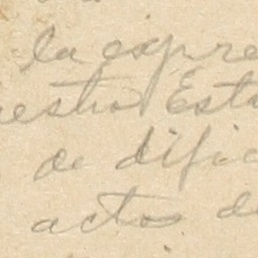 la expre
estro Esta
de dific
actos de